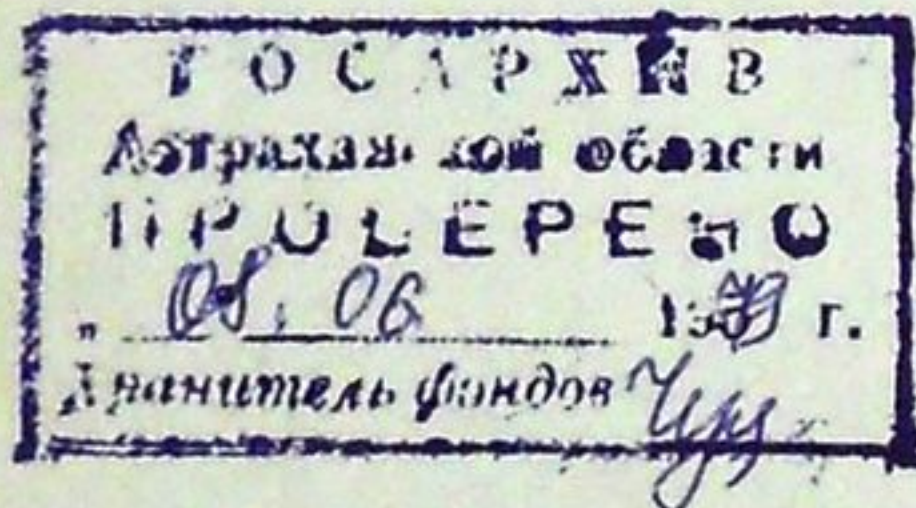 ГОСАРХИВ
Астраханской области
ПРОВЕРЕНО
" 08. 06 г.
Хранитель фондов